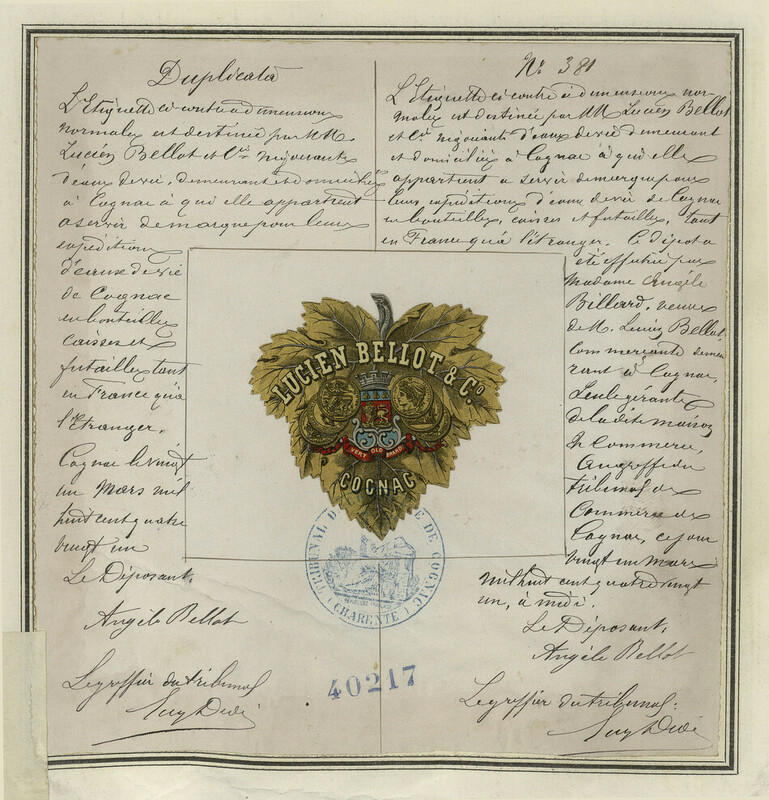 Duplicata
L'Etiquette ci-contre a dimensions
normales est destinée par MM.
Lucien Bellot et Cie négociants
d'eaux de vie, demeurant et domiciliés
à Cognac à qui elle appartient
a servir de marque pour leurs
expéditions
d'eaux de vie
de Cognac
en bouteilles
caisses et
futailles tant
en France qu'à
l'Etranger.
Cognac le vingt
un Mars mil
huit cent quatre
vingt un
Le Déposant,
Angèle Bellot
Le greffier du tribunal
No 381
L'Etiquette ci contre à dimensions nor-
males est destinée par MM. Lucien Bellot
et Cie négociants d'eaux de vie demeurant
et domiciliés à Cognac à qui elle
appartient a servir de marque pour
leurs expéditions d'eaux de vie de Cognac
en bouteilles, caisses et futailles, tant
en France qu'à l'étranger. Ce dépôt a
été effectué par
Madame Angèle
Billard, veuve
de M. Lucien Bellot,
commerçante demeu
rant à Cognac,
seule gérante
de la dite maison
de Commerce,
au greffe du
tribunal de
Commerce de
Cognac, ce jour
vingt un Mars
mil huit cent quatre vingt
un, à midi.
Le Déposant,
Angèle Bellot
Le greffier du tribunal:
LUCIEN BELLOT & Co
VERY OLD BRANDY
COGNAC
TRIBUNAL DE COGNAC
(CHARENTE)
40217